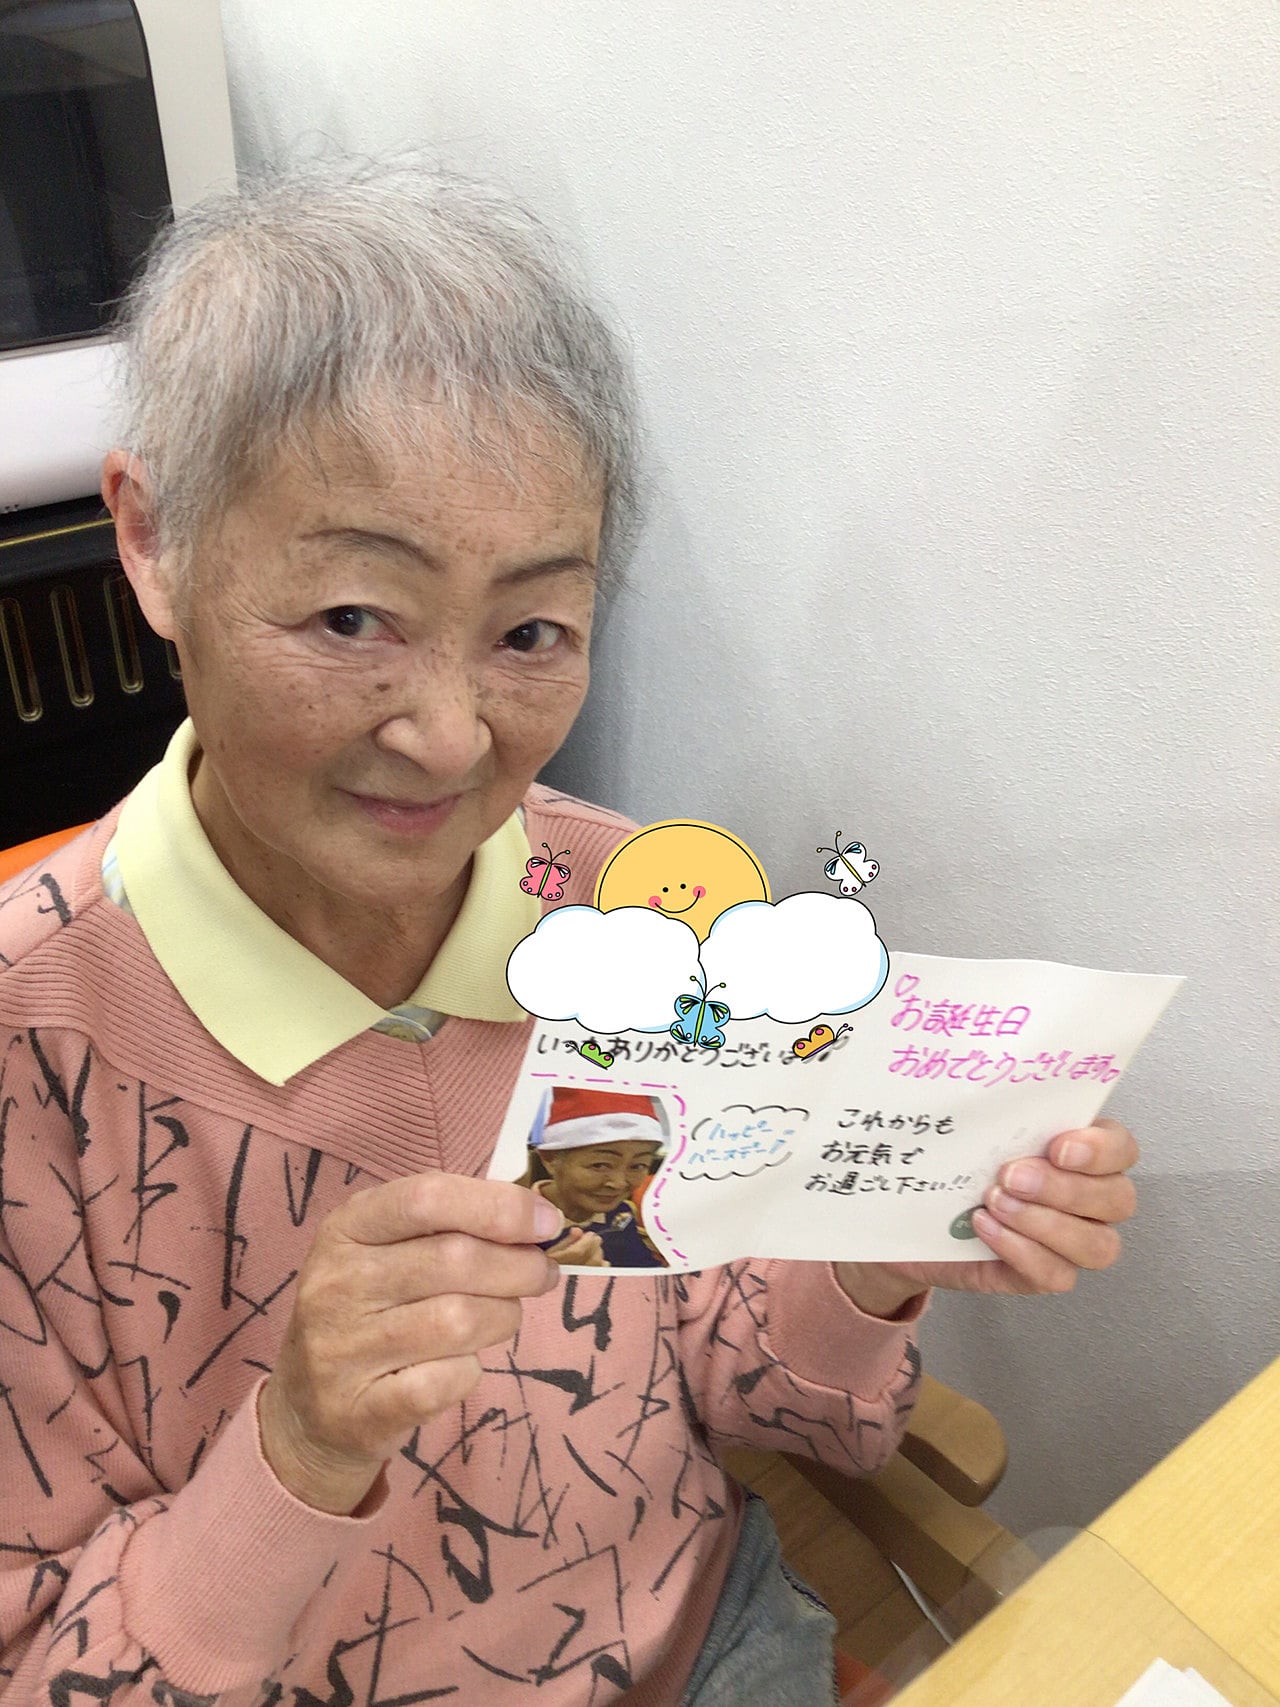 お誕生日
おめでとうございます。
いつもありがとうございます
ハッピー
バースデー!
これからも
お元気で
お過ごし下さい!!